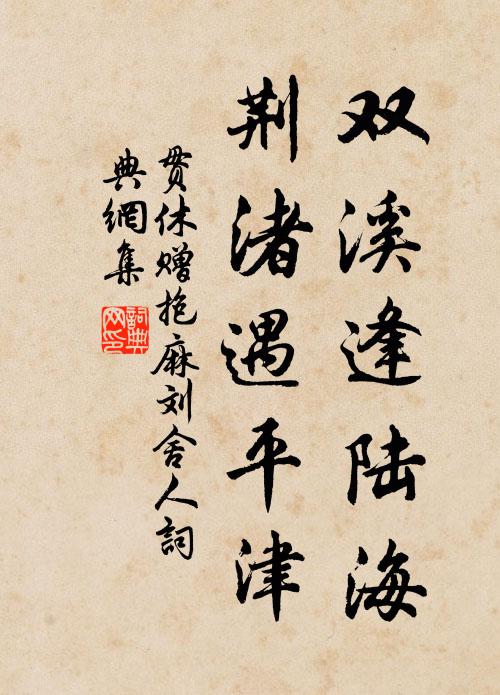 双溪逢陆海
荆渚遇平津
贯休赠抱麻刘舍人詞
典網集
詞典
网印